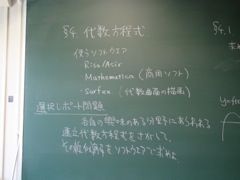 §4 代数方程式
使うソフトウエア
Risa/Asir
Mathematica (商用ソフト)
・surfex (代数曲面の描画)
選択レポート問題
各自の興味のある分野にあらわれる
連立代数方程式をさがして,
その数値解をソフトウエアで求めよ
§4.1